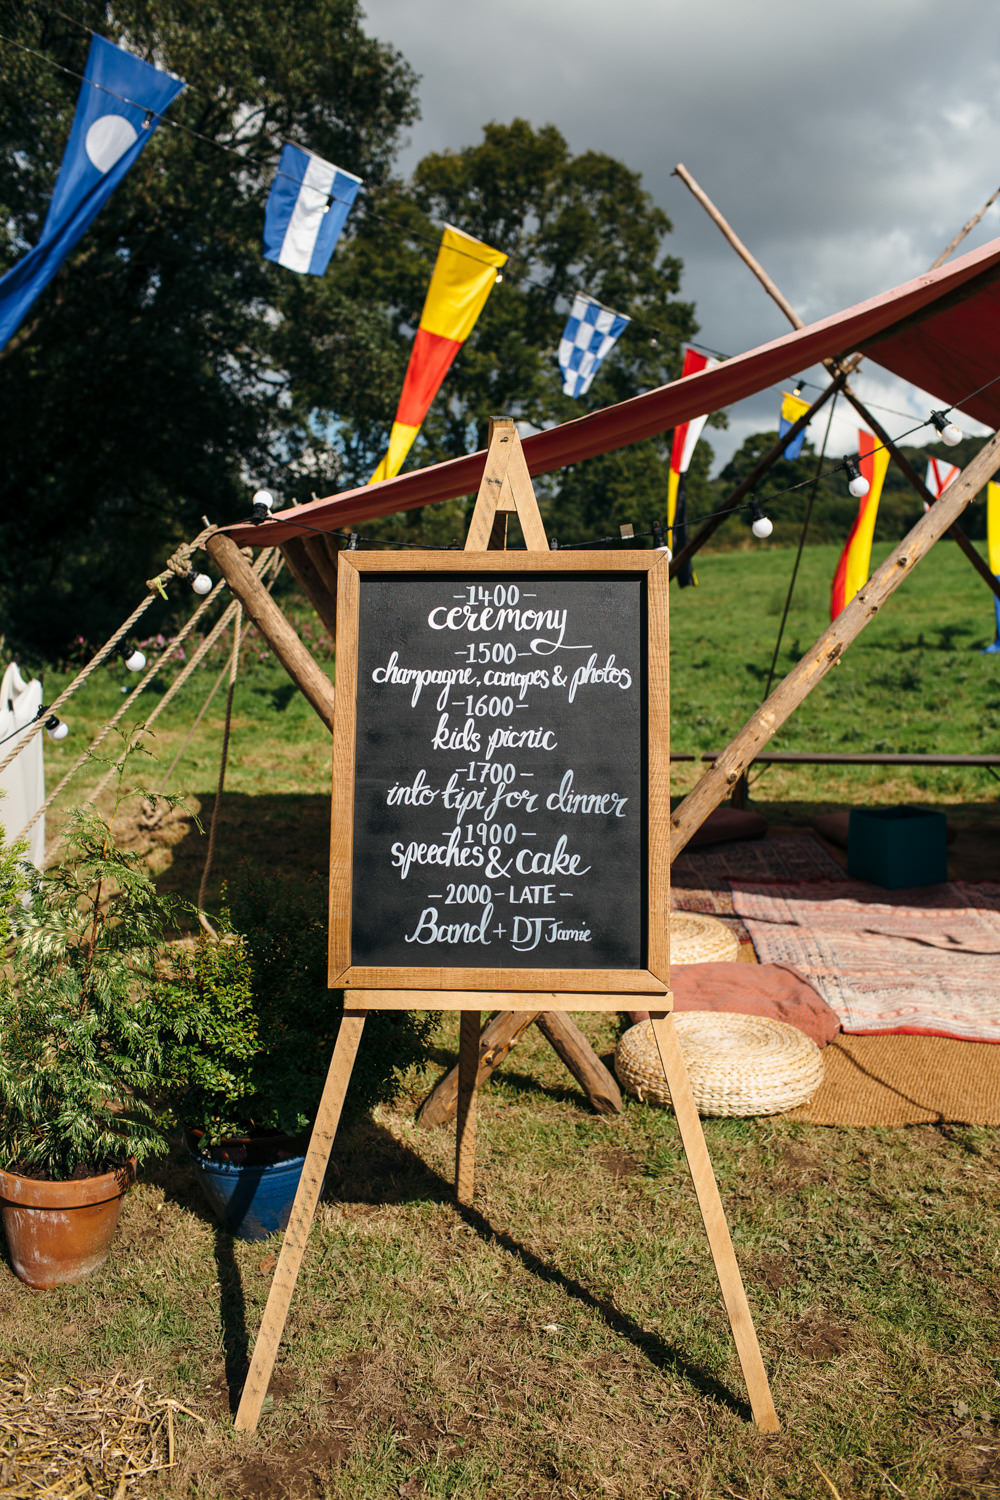 -1400-
ceremony
-1500-
champagne, canapes & photos
-1600-
kids picnic
-1700-
into tipi for dinner
-1900-
speeches & cake
-2000-LATE-
Band + DJ Jamie